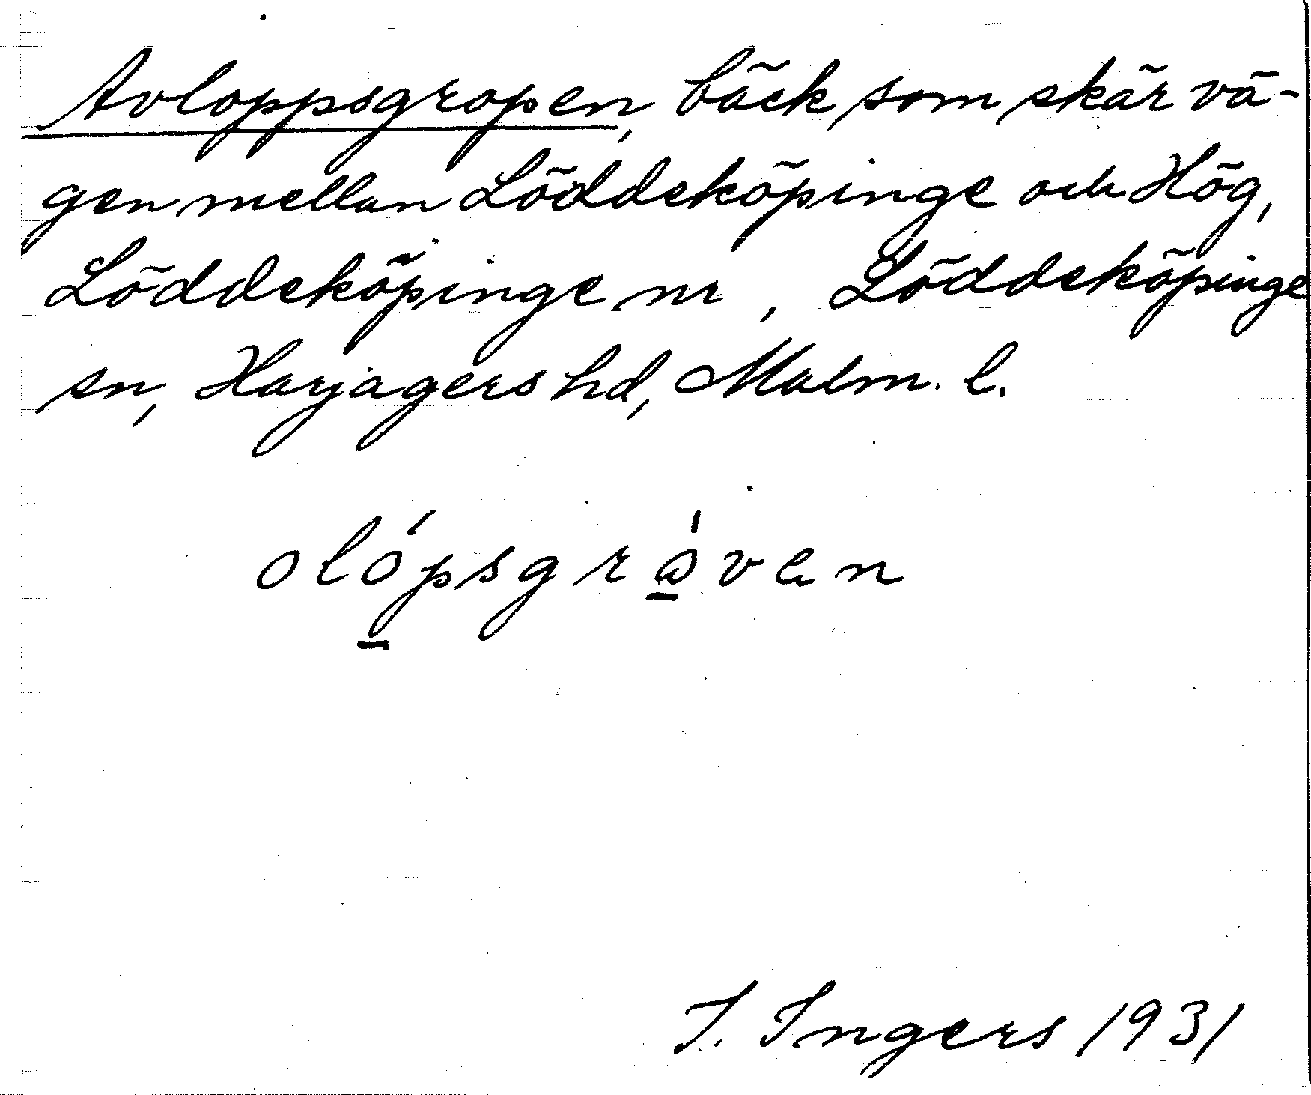 Avloppsgropen, bäck som skär vä-
gen mellan Löddeköpinge och Hög,
Löddeköpinge nr , Löddeköpinge
sn, Harjagers hd, Malm. l.
olópsgråven
I. Ingers 1931